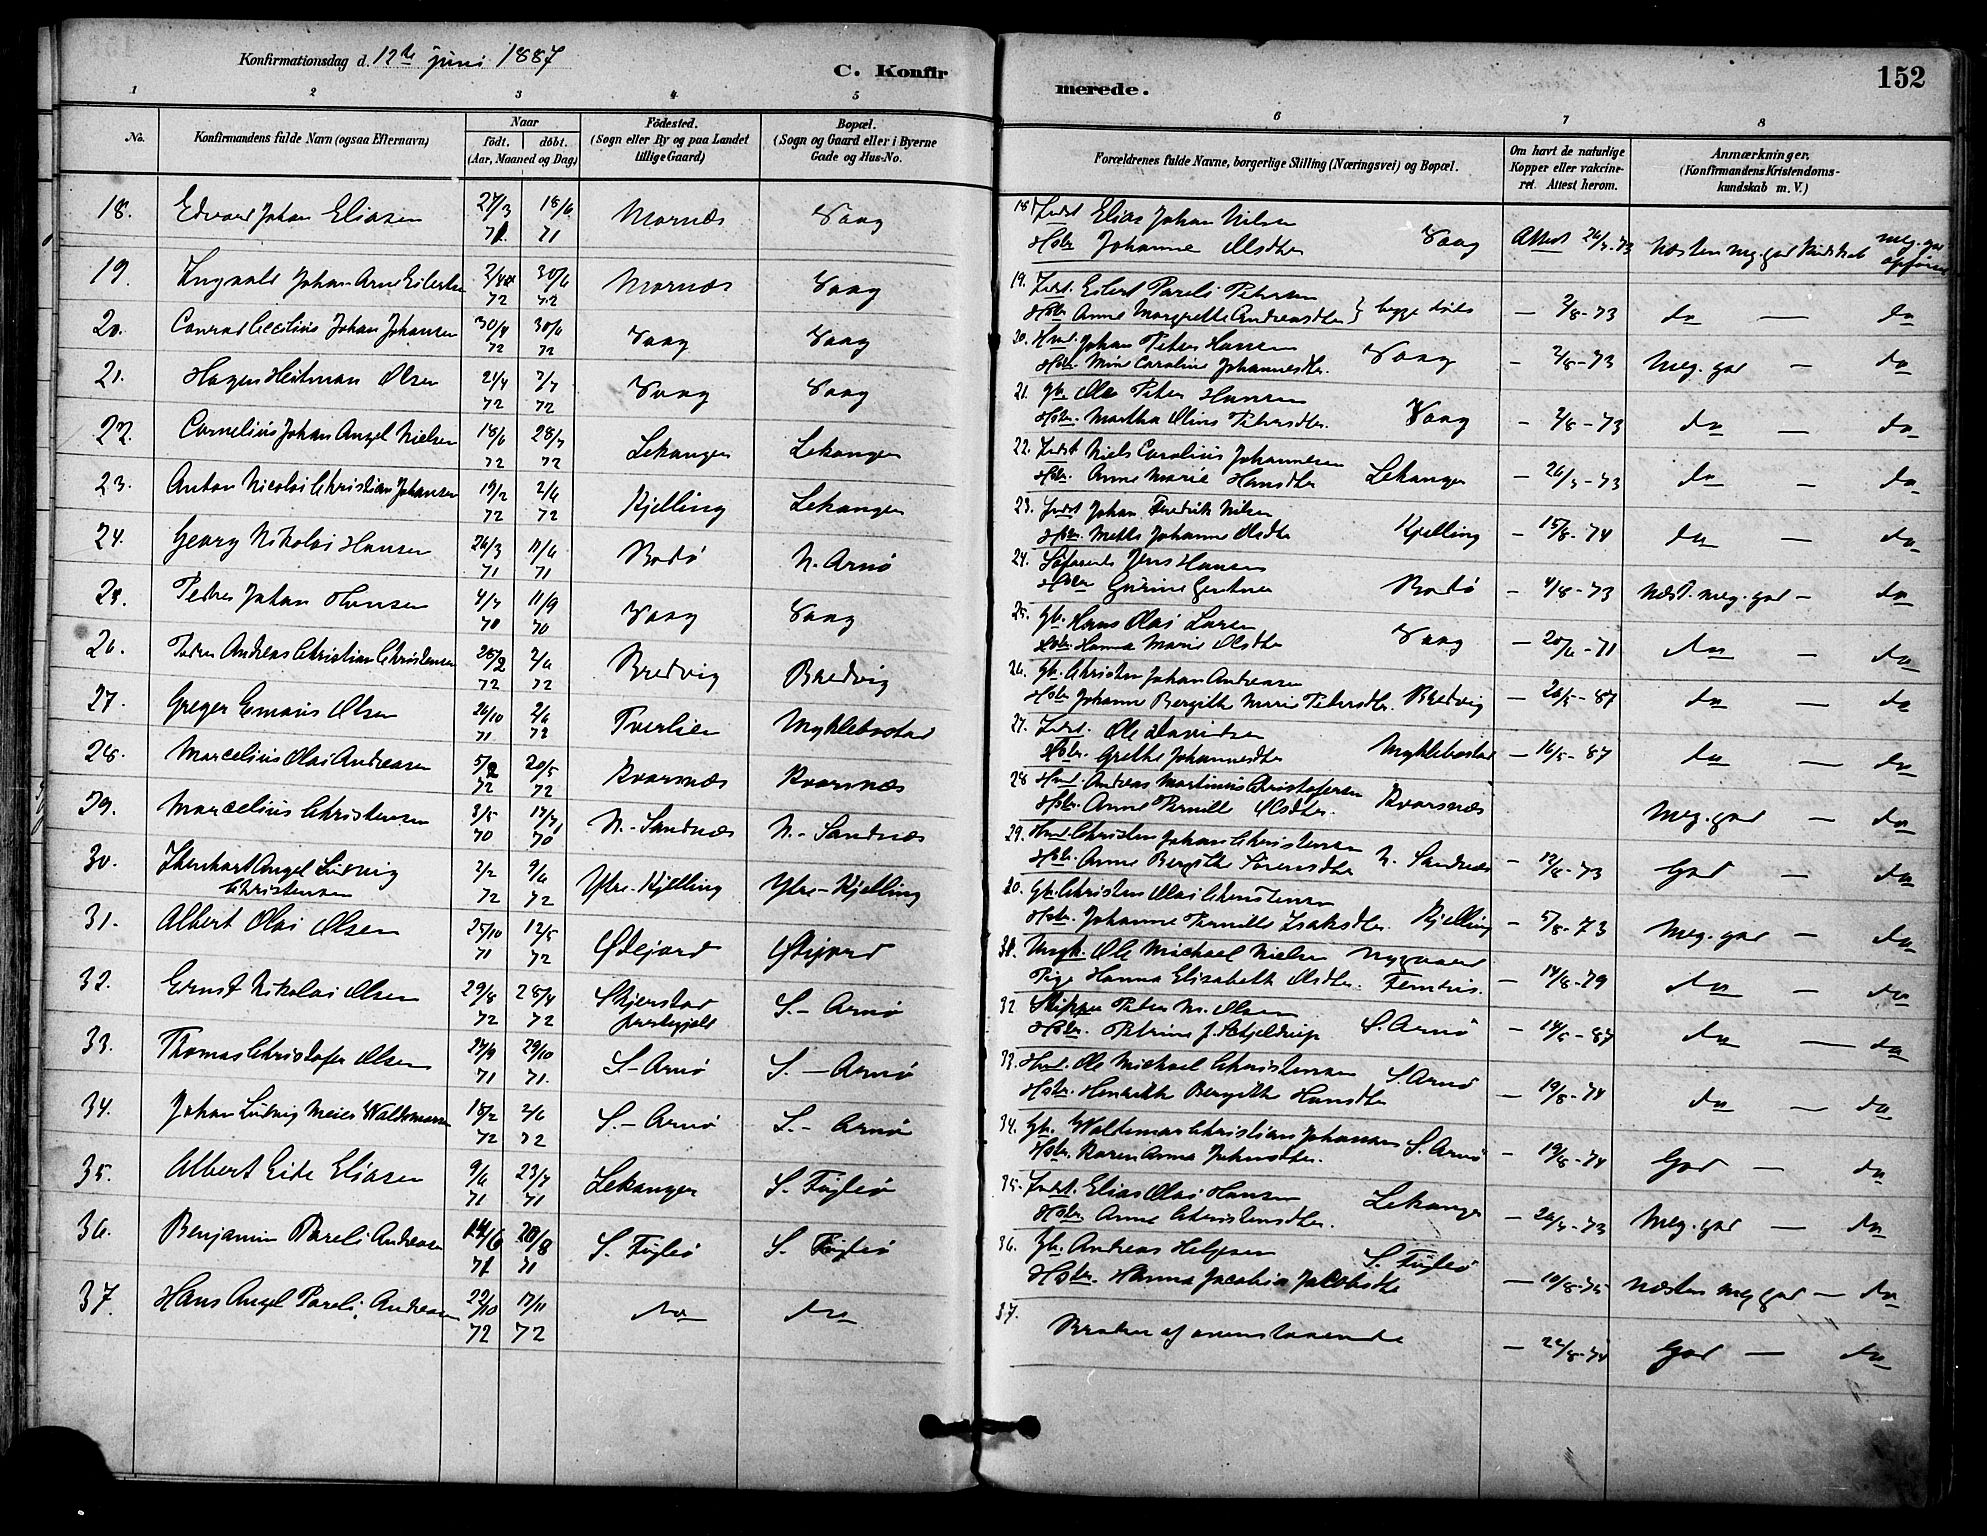 Konfirmationsdag d. 12te juni 1887
C. Konfirmerede.
152
1 2 3 4 5 6 7 8
No.
Konfirmandens fulde Navn (ogsaa Efternavn)
Naar
født. døbt.
(Aar, Maaned og Dag)
Fødested.
(Sogn eller By og paa Landet
tillige Gaard)
Bopæl.
(Sogn og Gaard eller i Byerne
Gade og Hus-No.
Forældrenes fulde Navne, borgerlige Stilling (Næringsvei) og Bopæl.
Om havt de naturlige
Kopper eller vakcine-
ret. Attest herom.
Anmærkninger.
(Konfirmandens Kristendoms-
kundskab m. V.)
18. Edvard Johan Eliasen 27/3 71 18/6 71 Mornæs Vaag
18. Indst Elias Johan Nilsen
Hstr Johanne Olsdtr Vaag Attest 26/7-73 Næsten meg. god Kundskab meg. god opførsel
19. Ingvald Johan Arnt Eilertsen 72 30/6 72 Mornæs Vaag
19. Indst. Eilert Pareli Petersen
Hstr Anne Margrethe Andreasdtr } begge døde — 2/8-73 do — do
20. Conrad Cecilius Johan Johansen 30/4 72 30/6 72 Vaag Vaag
20. Hmd. Johan Peter Hansen
Hstr. Mine Caroline Johannesdtr. Vaag — 2/8-73 Meg. god do
21. Hagen Heitman Olsen 21/4 72 7/7 72 Vaag Vaag
21. Gbr. Ole Peter Hansen
Hstr. Martha Oline Petersdtr. Vaag — 2/8-73 do — do
22. Cornelius Johan Angel Nielsen 18/6 72 28/7 72 Lekanger Lekanger
22. Indst Niels Carolius Johannesen
Hstr. Anne Marie Hansdtr Lekanger — 26/7-73 do — do
23. Anton Nicolai Christian Johansen 19/2 72 2/6 72 Kjelling Lekanger
23. Indst Johan Fredrik Nilsen
Hstr. Mette Johanne Olsdtr Kjelling — 15/8-74 do — do
24. Georg Nikolai Hansen 26/3 71 11/6 71 Bodø N. Arnø
24. Jens Hansen
Bodø — 4/8-73 Næst. meg. god — do
25. Peder Johan Hansen 4/7 70 11/9 70 Vaag Vaag
25. Gbr. Hans Olai Larsen
Hstr. Hanna Marie Olsdtr Vaag — 20/6-71 do — do
26. Peder Andreas Christian Christensen 25/2 72 2/6 72 Bredvig Bredvig
26. Gbr. Christen Johan Andreasen
Hstr Johanne Bergitte Marie Petersdtr. Bredvig — 26/5-87 do — do
27. Greger Emaus Olsen 26/10 71 2/6 72 Tverlien Myklebostad
27. Indst. Ole Davidsen
Hstr. Grethe Johannesdtr Myklebostad — 16/5-87 do — do
28. Marcelius Olai Andreasen 5/2 72 20/5 72 Kvarsnæs Kvarsnæs
28 Hmd. Andreas Martinius Christofersen
Hstr. Anne Pernille Olsdtr. Kvarsnæs Meg. god — do
29. Marcelius Christensen 3/5 70 17/7 70 N.-Sandnæs N.-Sandnæs
29. Hmd. Christen Johan Christensen
Hstr. Anne Bergitte Sørensdtr N. Sandnæs — God — do
30. Ihenhart Angel Ludvig
Christensen 2/2 72 9/6 72 Ytre-Kjelling Ytre-Kjelling
30. Gbr. Christen Olai Christensen
Hstr. Johanne Pernille Isaksdtr. Kjelling — 5/8-73 Meg. god — do
31. Albert Olai Olsen 25/10 71 12/5 72 Øiejord Øiejord
31. Ungk. Ole Michael Nielsen Nygaard
Pige Hanna Elizabeth Olsdtr. Femris. — 14/8-79 do — do
32. Ernst Nikolai Olsen 29/8 72 28/4 72 Skjerstad
prestegjeld S.-Arnø
32 Skipper Peter M. Olsen
Hstr. Petrine J. Schjeldrup S. Arnø — 14/5-87 do — do
33. Thomas Christofer Olsen 24/9 71 29/10 71. S-Arnø S.-Arnø
33. Hmd. Ole Michael Christensen
Hstr. Henrikke Bergitte Hansdtr S. Arnø — 19/8-74 do — do
34. Johan Ludvig Meier Waldemarsen 18/2 72 2/6 72 S.-Arnø S.-Arnø
34. Gbr. Waldemar Christian Johansen
Hstr. Karen Anna Johnsdtr. S. Arnø — 19/8-74 God — do
35. Albert Eide Eliasen 9/6 71 23/7 71 Lekanger S. Fugleø
35. Indst. Elias Olai Hansen
Hstr. Anne Christensdtr. Lekanger — 26/7-73 Meg. god — do
36. Benjamin Pareli Andreasen 14/6 71 20/8 71 S. Fugleø S. Fugleø
36. Gbr. Andreas Helgesen
Hstr. Hanna Jacobia Jacobsdtr S. Fugleø — 10/8-75 Næsten meg god — do
37. Hans Angel Pareli Andreasen 22/10 72 17/11 72 do do
37. Broder af ovenstaaende — 22/8-74 God — do